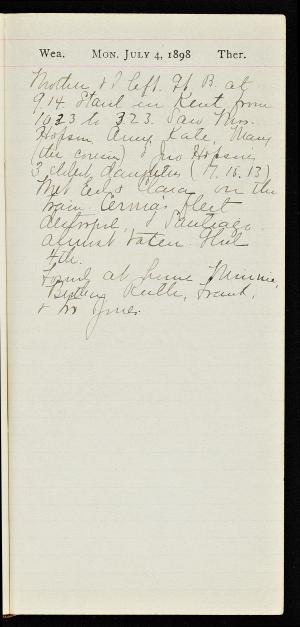 Wea. MON. JULY 4, 1898 Ther.
Mother & I left Gt B. at
9.14 Staid in Kent from
10 23 to 3 23. Saw Mrs.
Hopson Anna, Kate, Mary
(the cousin) & Jno Hopsons
3 eldest daughters (17, 15, 13)
Met Ed & Clara on the
train. Cervera's fleet
destroyed, & Santiago
almost taken
4th.
Found at home Minnie,
Ruth, Frank,
& Mr Jones.